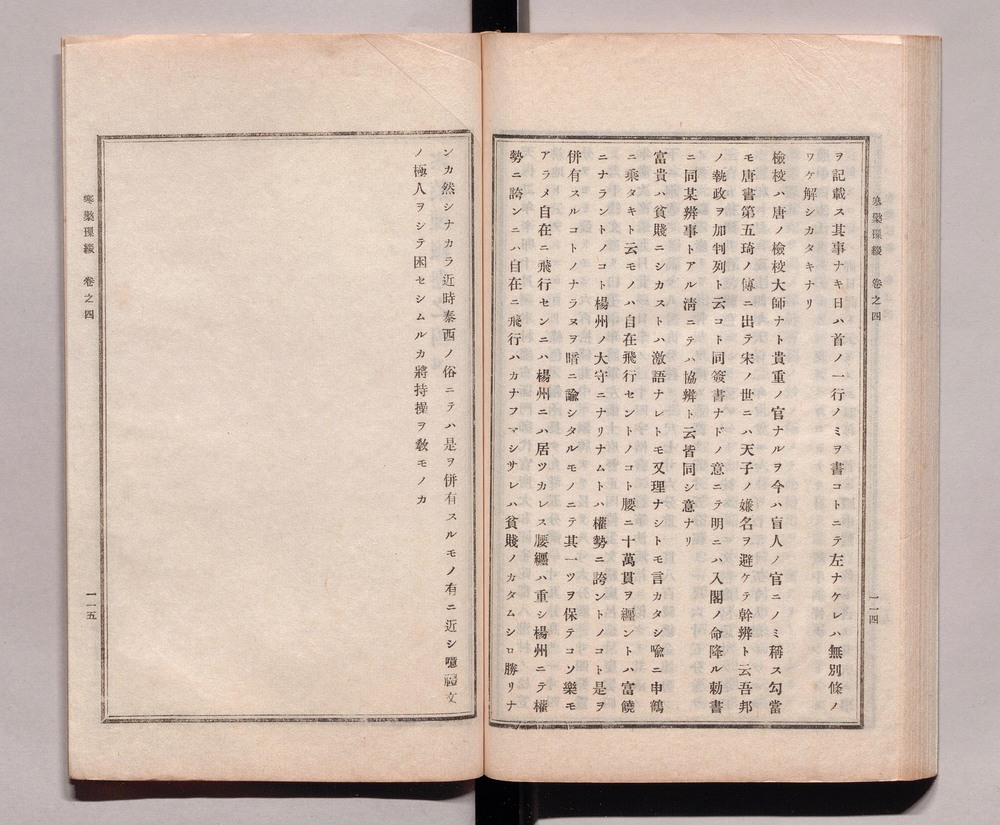 寒檠璅綴　卷之四
一一四
ヲ記載ス其事ナキ日ハ首ノ一行ノミヲ書コトニテ左ナケレハ無別條ノ
ワケ解シカタキナリ
檢校ハ唐ノ檢校大師ナト貴重ノ官ナルヲ今ハ盲人ノ官ニノミ稱ス勾當
モ唐書第五琦ノ傳ニ出テ宋ノ世ニハ天子ノ嫌名ヲ避ケテ幹辨ト云吾邦
ノ執政ヲ加判列ト云コト同簽書ナドノ意ニテ明ニハ入閣ノ命降ル勅書
ニ同某辨事トアル淸ニテハ協辨ト云皆同シ意ナリ
富貴ハ貧賤ニシカストハ激語ナレトモ又理ナシトモ言カタシ喩ニ申鶴
ニ乘タキト云モノハ自在飛行セントノコト腰ニ十萬貫ヲ纒ントハ富饒
ニナラントノコト楊州ノ大守ニナリナムトハ權勢ニ誇ントノコト是ヲ
併有スルコトノナラヌヲ暗ニ諭シタルモノニテ其一ツヲ保テコソ樂モ
アラメ自在ニ飛行センニハ楊州ニハ居ツカレス腰纒ハ重シ楊州ニテ權
勢ニ誇ンニハ自在ニ飛行ハカナフマシサレハ貧賤ノカタムシロ勝リナ
ンカ然シナカラ近時泰西ノ俗ニテハ是ヲ併有スルモノ有ニ近シ噫禮文
ノ極人ヲシテ困セシムルカ將持操ヲ敎モノカ
寒檠璅綴　卷之四
一一五